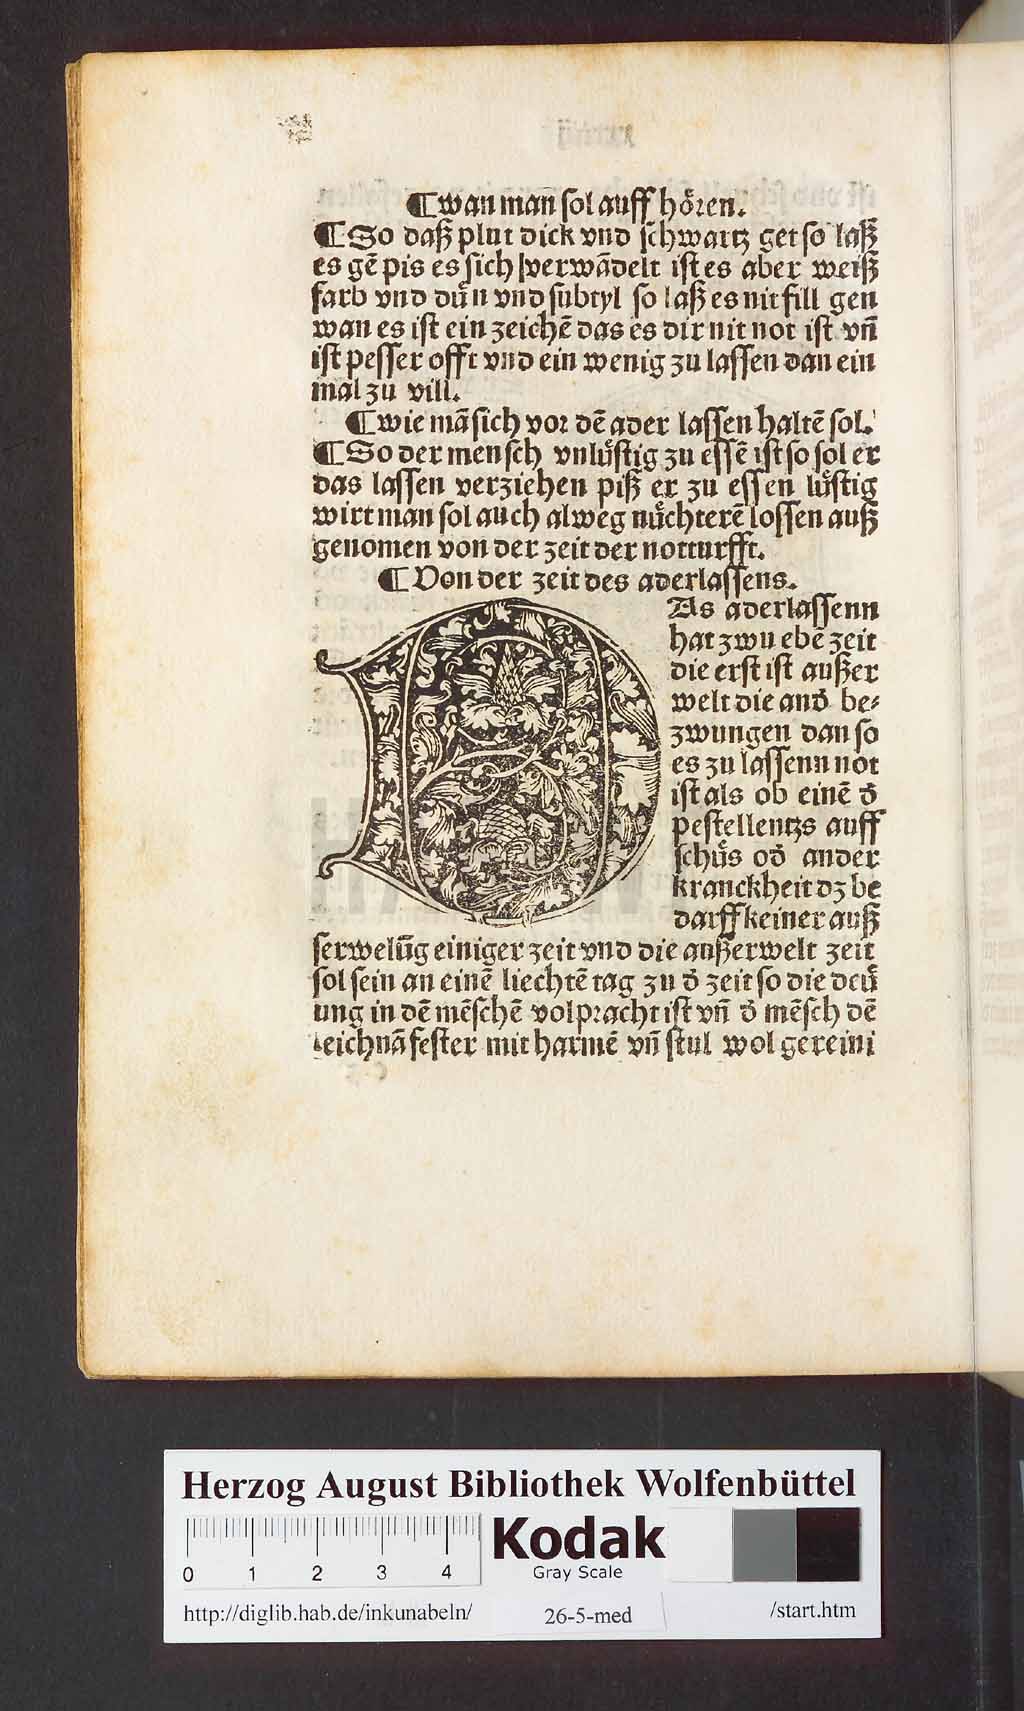 ¶ wan man sol auff hoͤren.
¶ So daß plut dick vnd schwartz get so laß
es gē pis es sich verwādelt ist es aber weiß
farb vnd duͤn vnd subtyl so laß es nit fill gen
wan es ist ein zeichē das es dir nit not ist vn̄
ist pesser offt vnd ein wenig zu lassen dan ein
mal zu vill.
¶ wie mā sich vor dē ader lassen haltē sol.
¶ So der mensch vnluͤstig zu essē ist so sol er
das lassen verziehen piß er zu essen luͤstig
wirt man sol auch alweg nuͤchterē lossen auß
genomen von der zeit der notturfft.
¶ Von der zeit des aderlassens.
DAs aderlassenn
hat zwu ebē zeit
die erst ist außer
welt die and̄ be⸗
zwungen dan so
es zu lassenn not
ist als ob einē d̄
pestellentzs auff
schuͤs od̄ ander
kranckheit dz be
darff keiner auß
serwelūg einiger zeit vnd die außerwelt zeit
sol sein an einē liechtē tag zu d̄ zeit so die deuͤ
ung in dē mēschē volpracht ist vn̄ d̄ mēsch dē
leichnā fester mit harmē vn̄ stul wol gereini
Herzog August Bibliothek Wolfenbüttel
0 1 2 3 4
Kodak
Gray Scale
http://diglib.hab.de/inkunabeln/ 26-5-med /start.htm